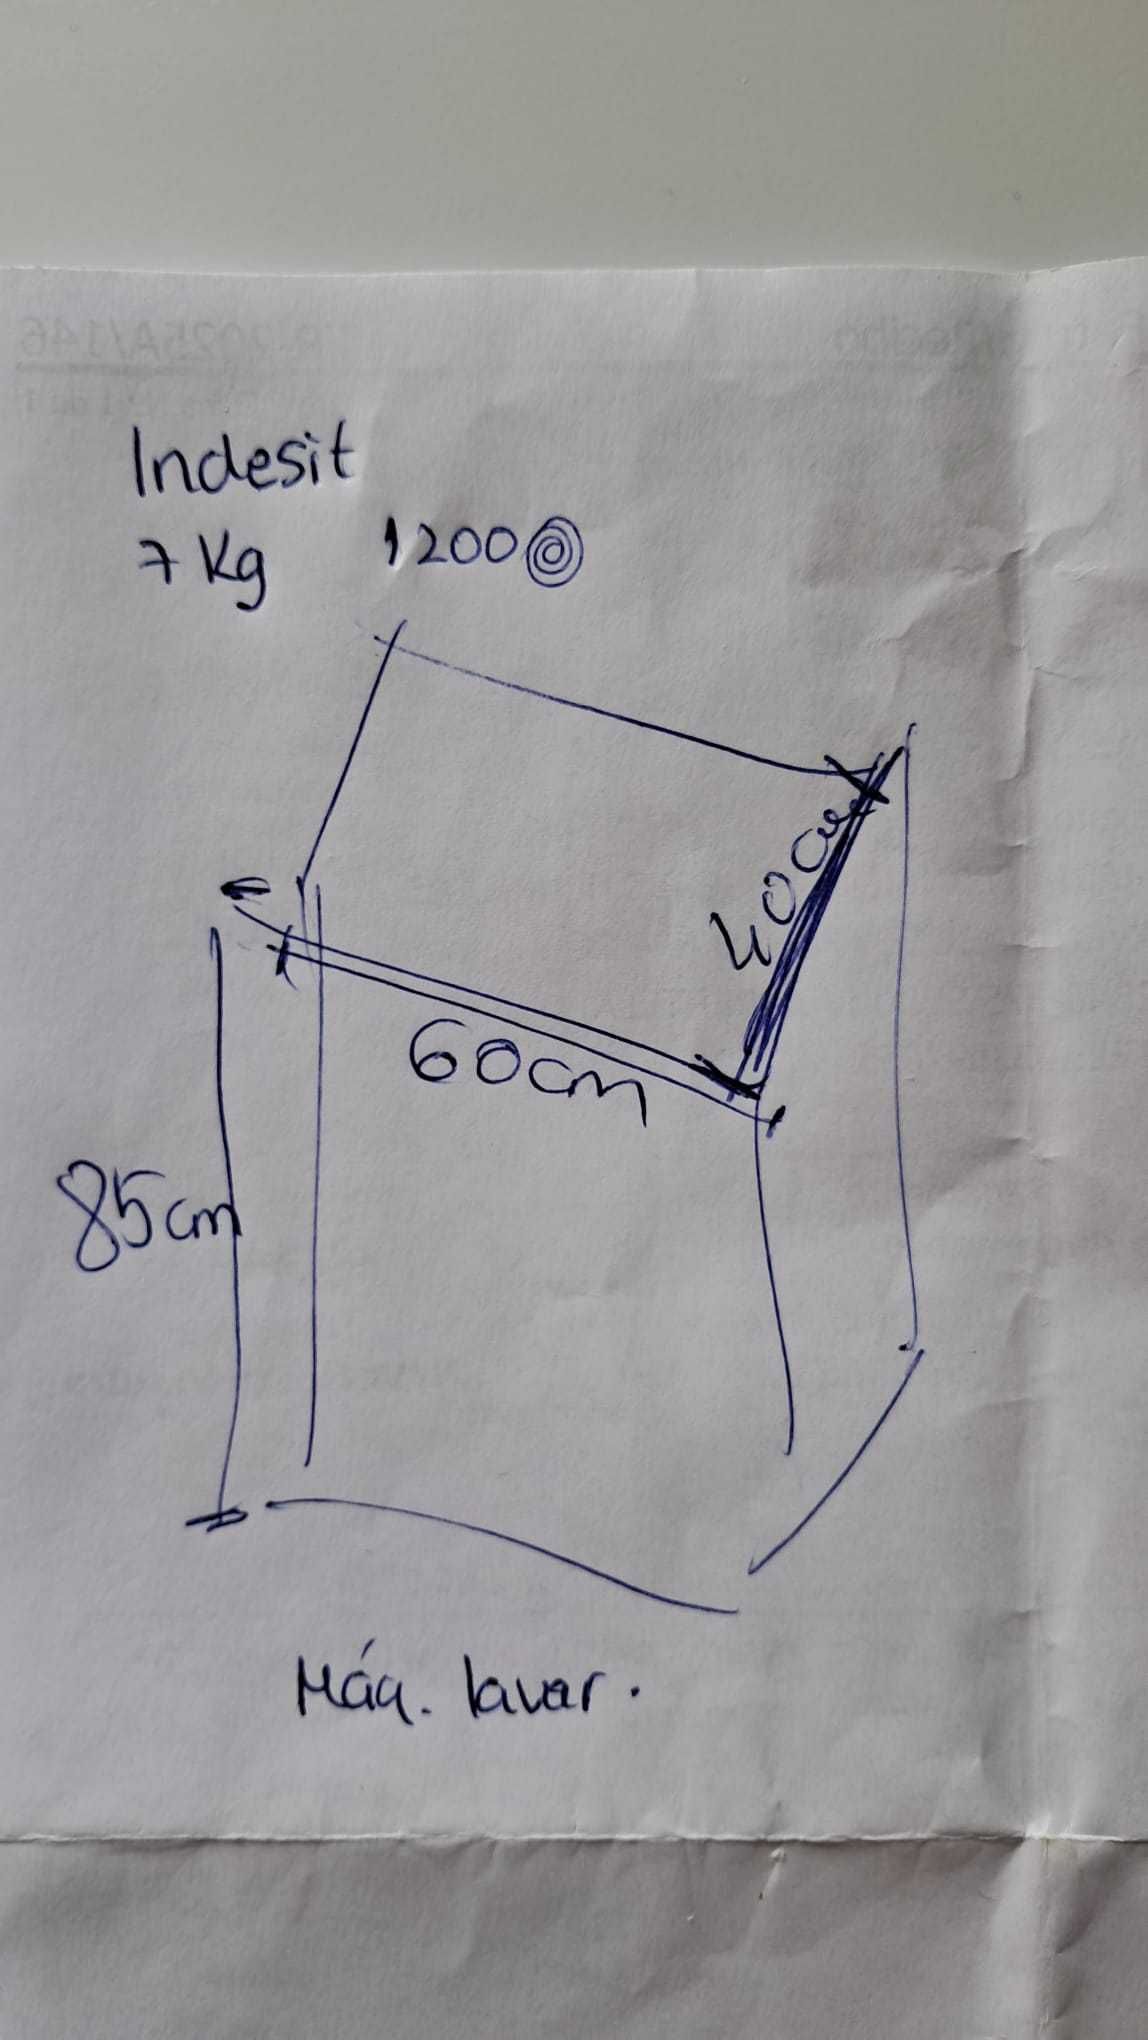 Indesit
7 Kg 1200
40cm
60cm
85cm
Máq. lavar.